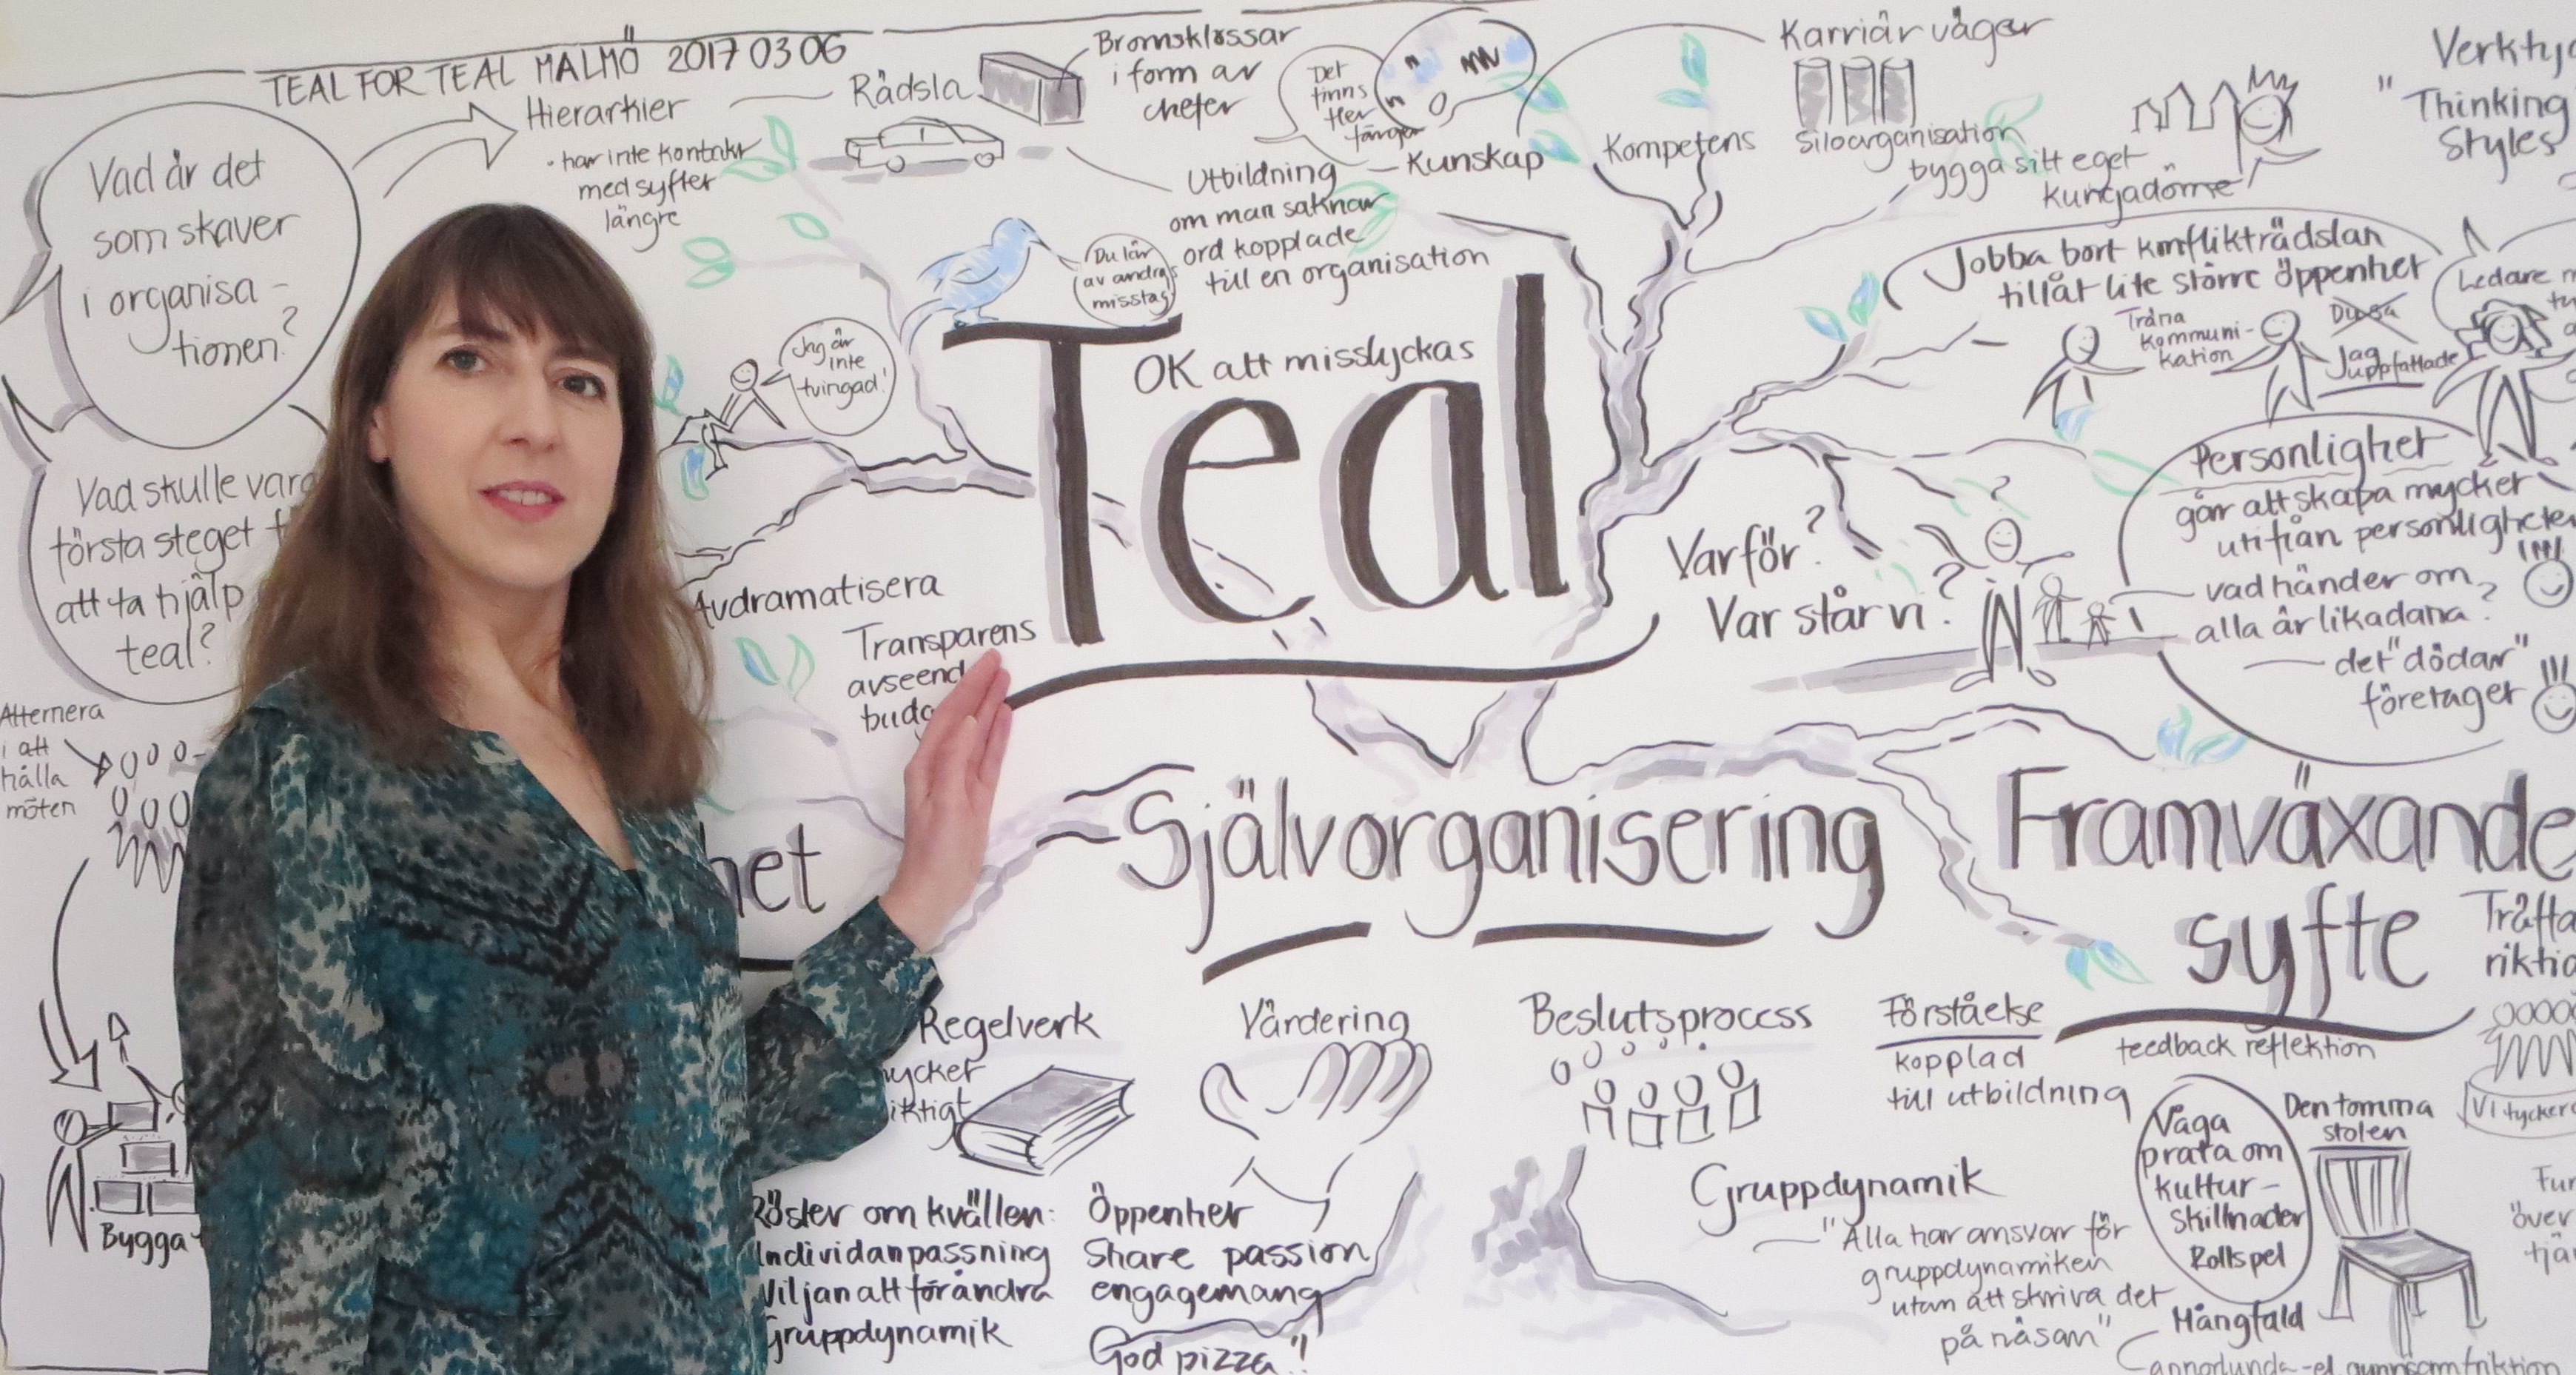 TEAL FOR TEAL MALMÖ 2017 03 06
Vad är det
som skaver
i organisa-
tionen?
Vad skulle vara
första steget
att ta hjälp
teal?
Alternera
i att
hålla
möten
Bygga
Hierarkier
• har inte kontakt
med syftet
längre
Rädsla
Bromsklossar
i form av
chefer
Det
finns
fler
färger
Utbildning
om man saknar
ord kopplade
till en organisation
Kunskap
Kompetens
Karriärvägar
Siloorganisation
bygga sitt eget
kungadöme
Verkty
"Thinking
Styles
Du lär
av andras
misstag
Jag är
inte
tvingad!
Teal
OK att misslyckas
Jobba bort konflikträdslan
tillåt lite större öppenhet
Träna
kommuni-
kation
Du sa
Jag
uppfattade
Ledare
Personlighet
går att skapa mycket
utifrån personligheter
vad händer om
alla är likadana?
det "dödar"
företaget
Varför?
Var står vi?
Avdramatisera
Transparens
avseend
budg
het
Självorganisering
Framväxande
syfte
Träffa
riktio
Regelverk
mycket
viktigt
Värdering
Beslutsprocess
Förståelse
kopplad
till utbildning
feedback reflektion
Vi tycker
Våga
prata om
kultur-
skillnader
Rollspel
Den tomma
stolen
Gruppdynamik
"Alla har ansvar för
gruppdynamiken
utan att skriva det
på näsan"
Mångfald
annorlunda
friktion
Röster om kvällen:
Individanpassning
Viljan att förändra
Gruppdynamik
Öppenhet
Share passion
engagemang
God pizza"!